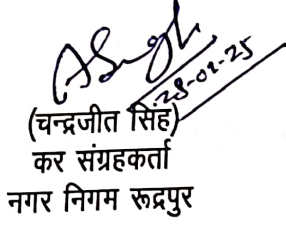 28-02-25
(चन्द्रजीत सिंह)
कर संग्रहकर्ता
नगर निगम रूद्रपुर